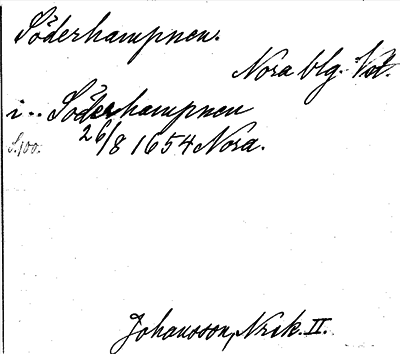 Söderhampnen.
Nora blg. Vstm.
i .. Söderhampnen
26/8 1654 Nora.
S. 100.
Johansson, Nrik. II.